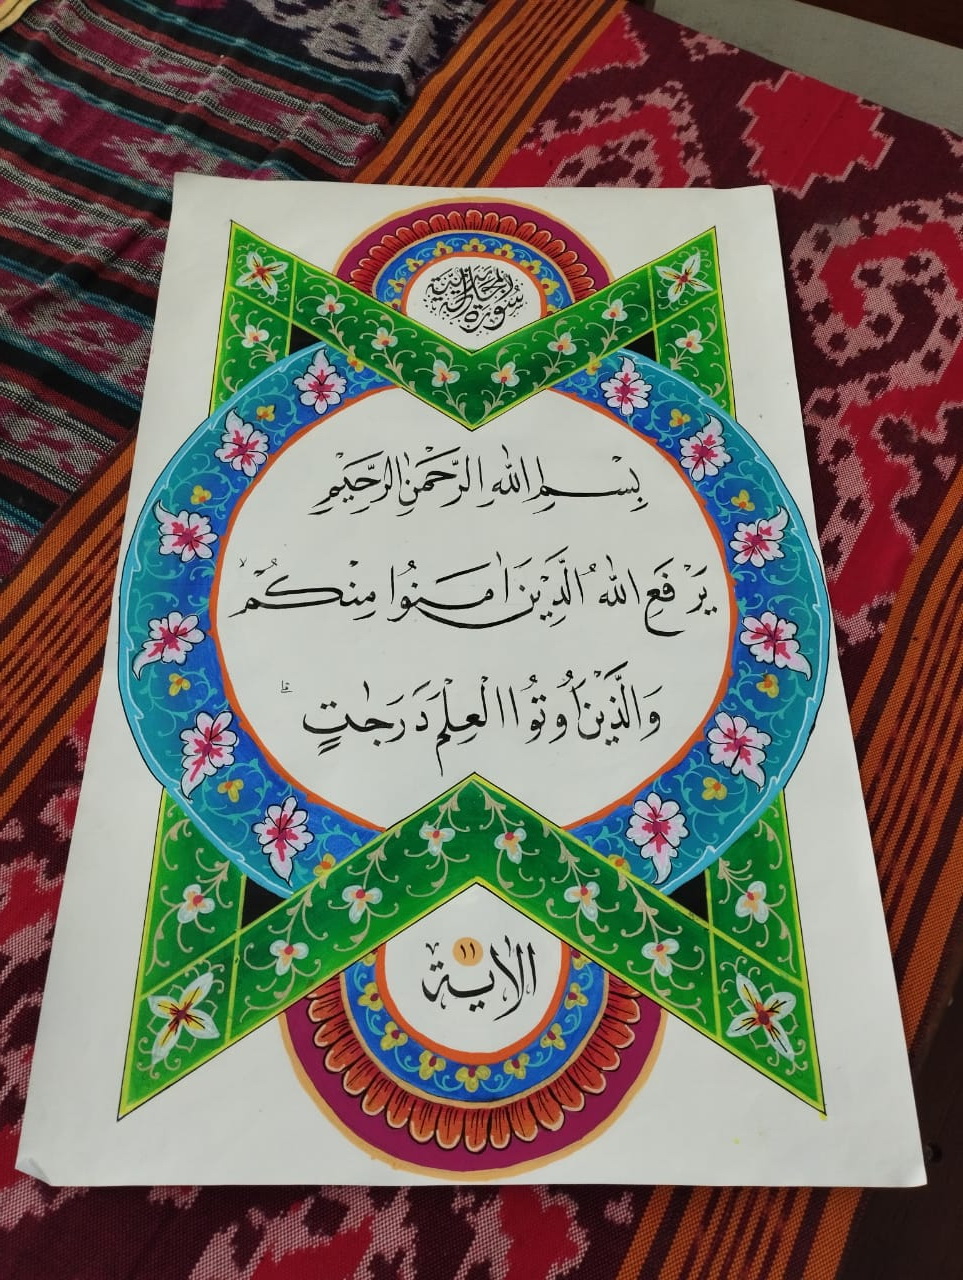 سورة المجادلة مدنية
بِسْمِ اللهِ الرَّحْمٰنِ الرَّحِيْمِ
يَرْفَعِ اللهُ الَّذِيْنَ اٰمَنُوْا مِنْكُمْۙ
وَالَّذِيْنَ اُوْتُوا الْعِلْمَ دَرَجٰتٍۗ
الاٰية
١١